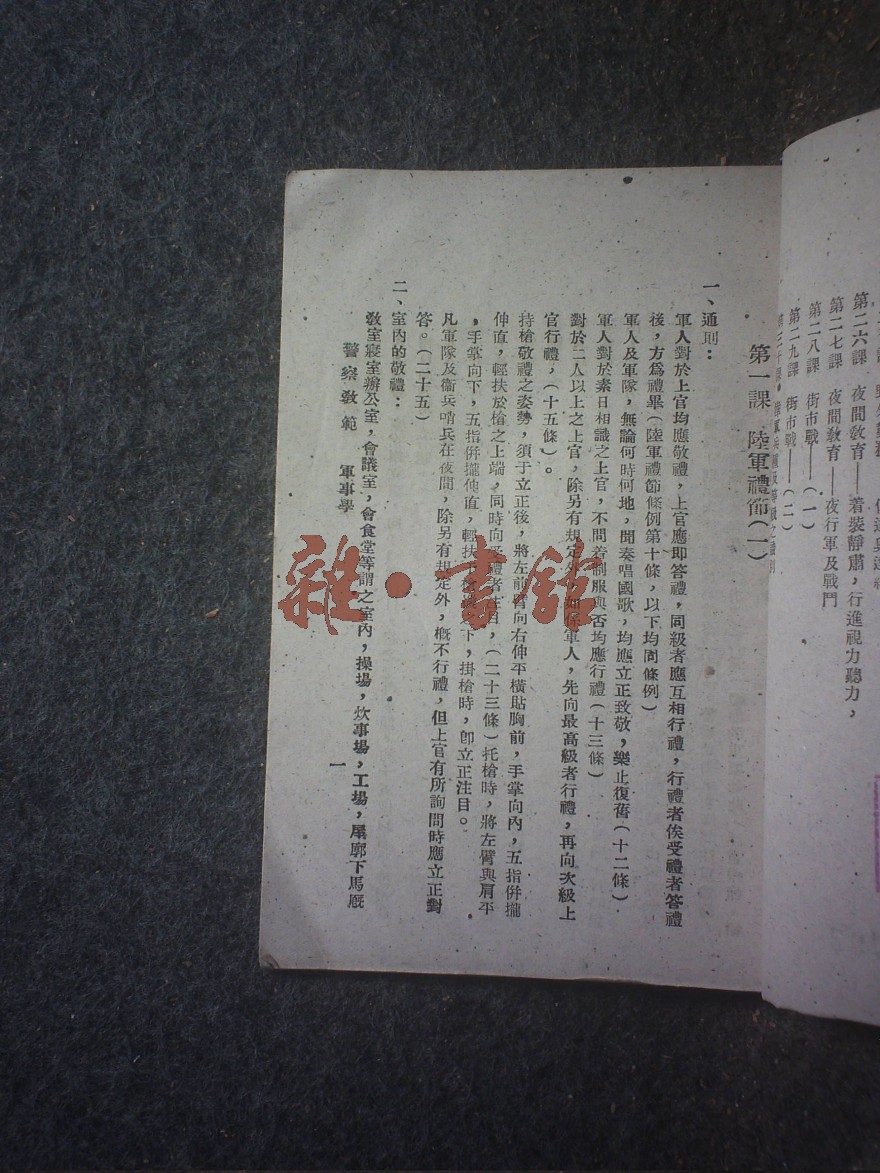 第二六課　夜間敎育——着裝靜肅，行進視力聽力，
第二七課　夜間敎育——夜行軍及戰鬥
第二八課　街市戰——（一）
第二九課　街市戰——（二）
第一課　陸軍禮節（一）
一、通則：
軍人對於上官均應敬禮，上官應即答禮，同級者應互相行禮，行禮者俟受禮者答禮
後，方爲禮畢（陸軍禮節條例第十條，以下均同條例）
軍人及軍隊，無論何時何地，聞奏唱國歌，均應立正致敬，樂止復舊（十二條）
軍人對於素日相識之上官，不問着制服與否均應行禮（十三條）
對於二人以上之上官，除另有規定外，如係軍人，先向最高級者行禮，再向次級上
官行禮，（十五條）。
持槍敬禮之姿勢，須于立正後，將左前臂向右伸平橫貼胸前，手掌向內，五指併攏
伸直，輕扶於槍之上端，同時向受禮者注目，（二十三條）托槍時，將左臂與肩平
，手掌向下，五指併攏伸直，輕扶下，掛槍時，卽立正注目。
凡軍隊及衞兵哨兵在夜間，除另有規定外，概不行禮，但上官有所詢問時應立正對
答。（二十五）
二、室內的敬禮：
敎室寢室辦公室，會議室，會食堂等謂之室內，操場，炊事場，工場，廓下馬廐
警察敎範　軍事學
一
雜·書館